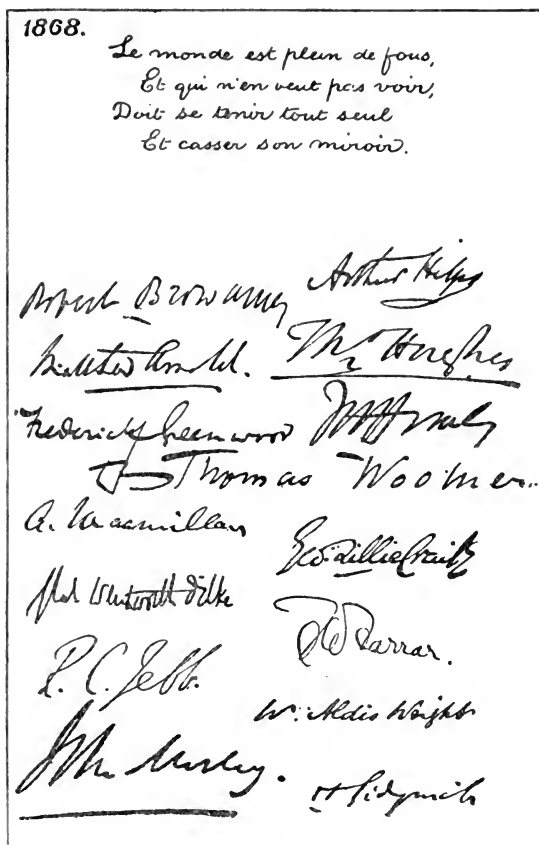 1868.
Le monde est plein de fous,
Et qui n'en veut pas voir,
Doit se tenir tout seul
Et casser son miroir.
Robert Browning
Arthur Helps
Matthew Arnold.
Thos Hughes
Frederick Greenwood
T H Huxley
Thomas Woolner
A. Macmillan
Geo: Lillie Craik
Wentworth Dilke
F W Farrar.
R. C. Jebb.
W. Aldis Wright
John Morley.
H Sidgwick